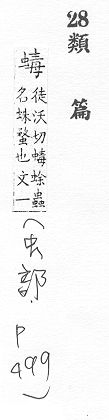 28類篇
蝳
徒沃切蝳蜍蟲
名蛛蝥也文一
(虫部. P499)